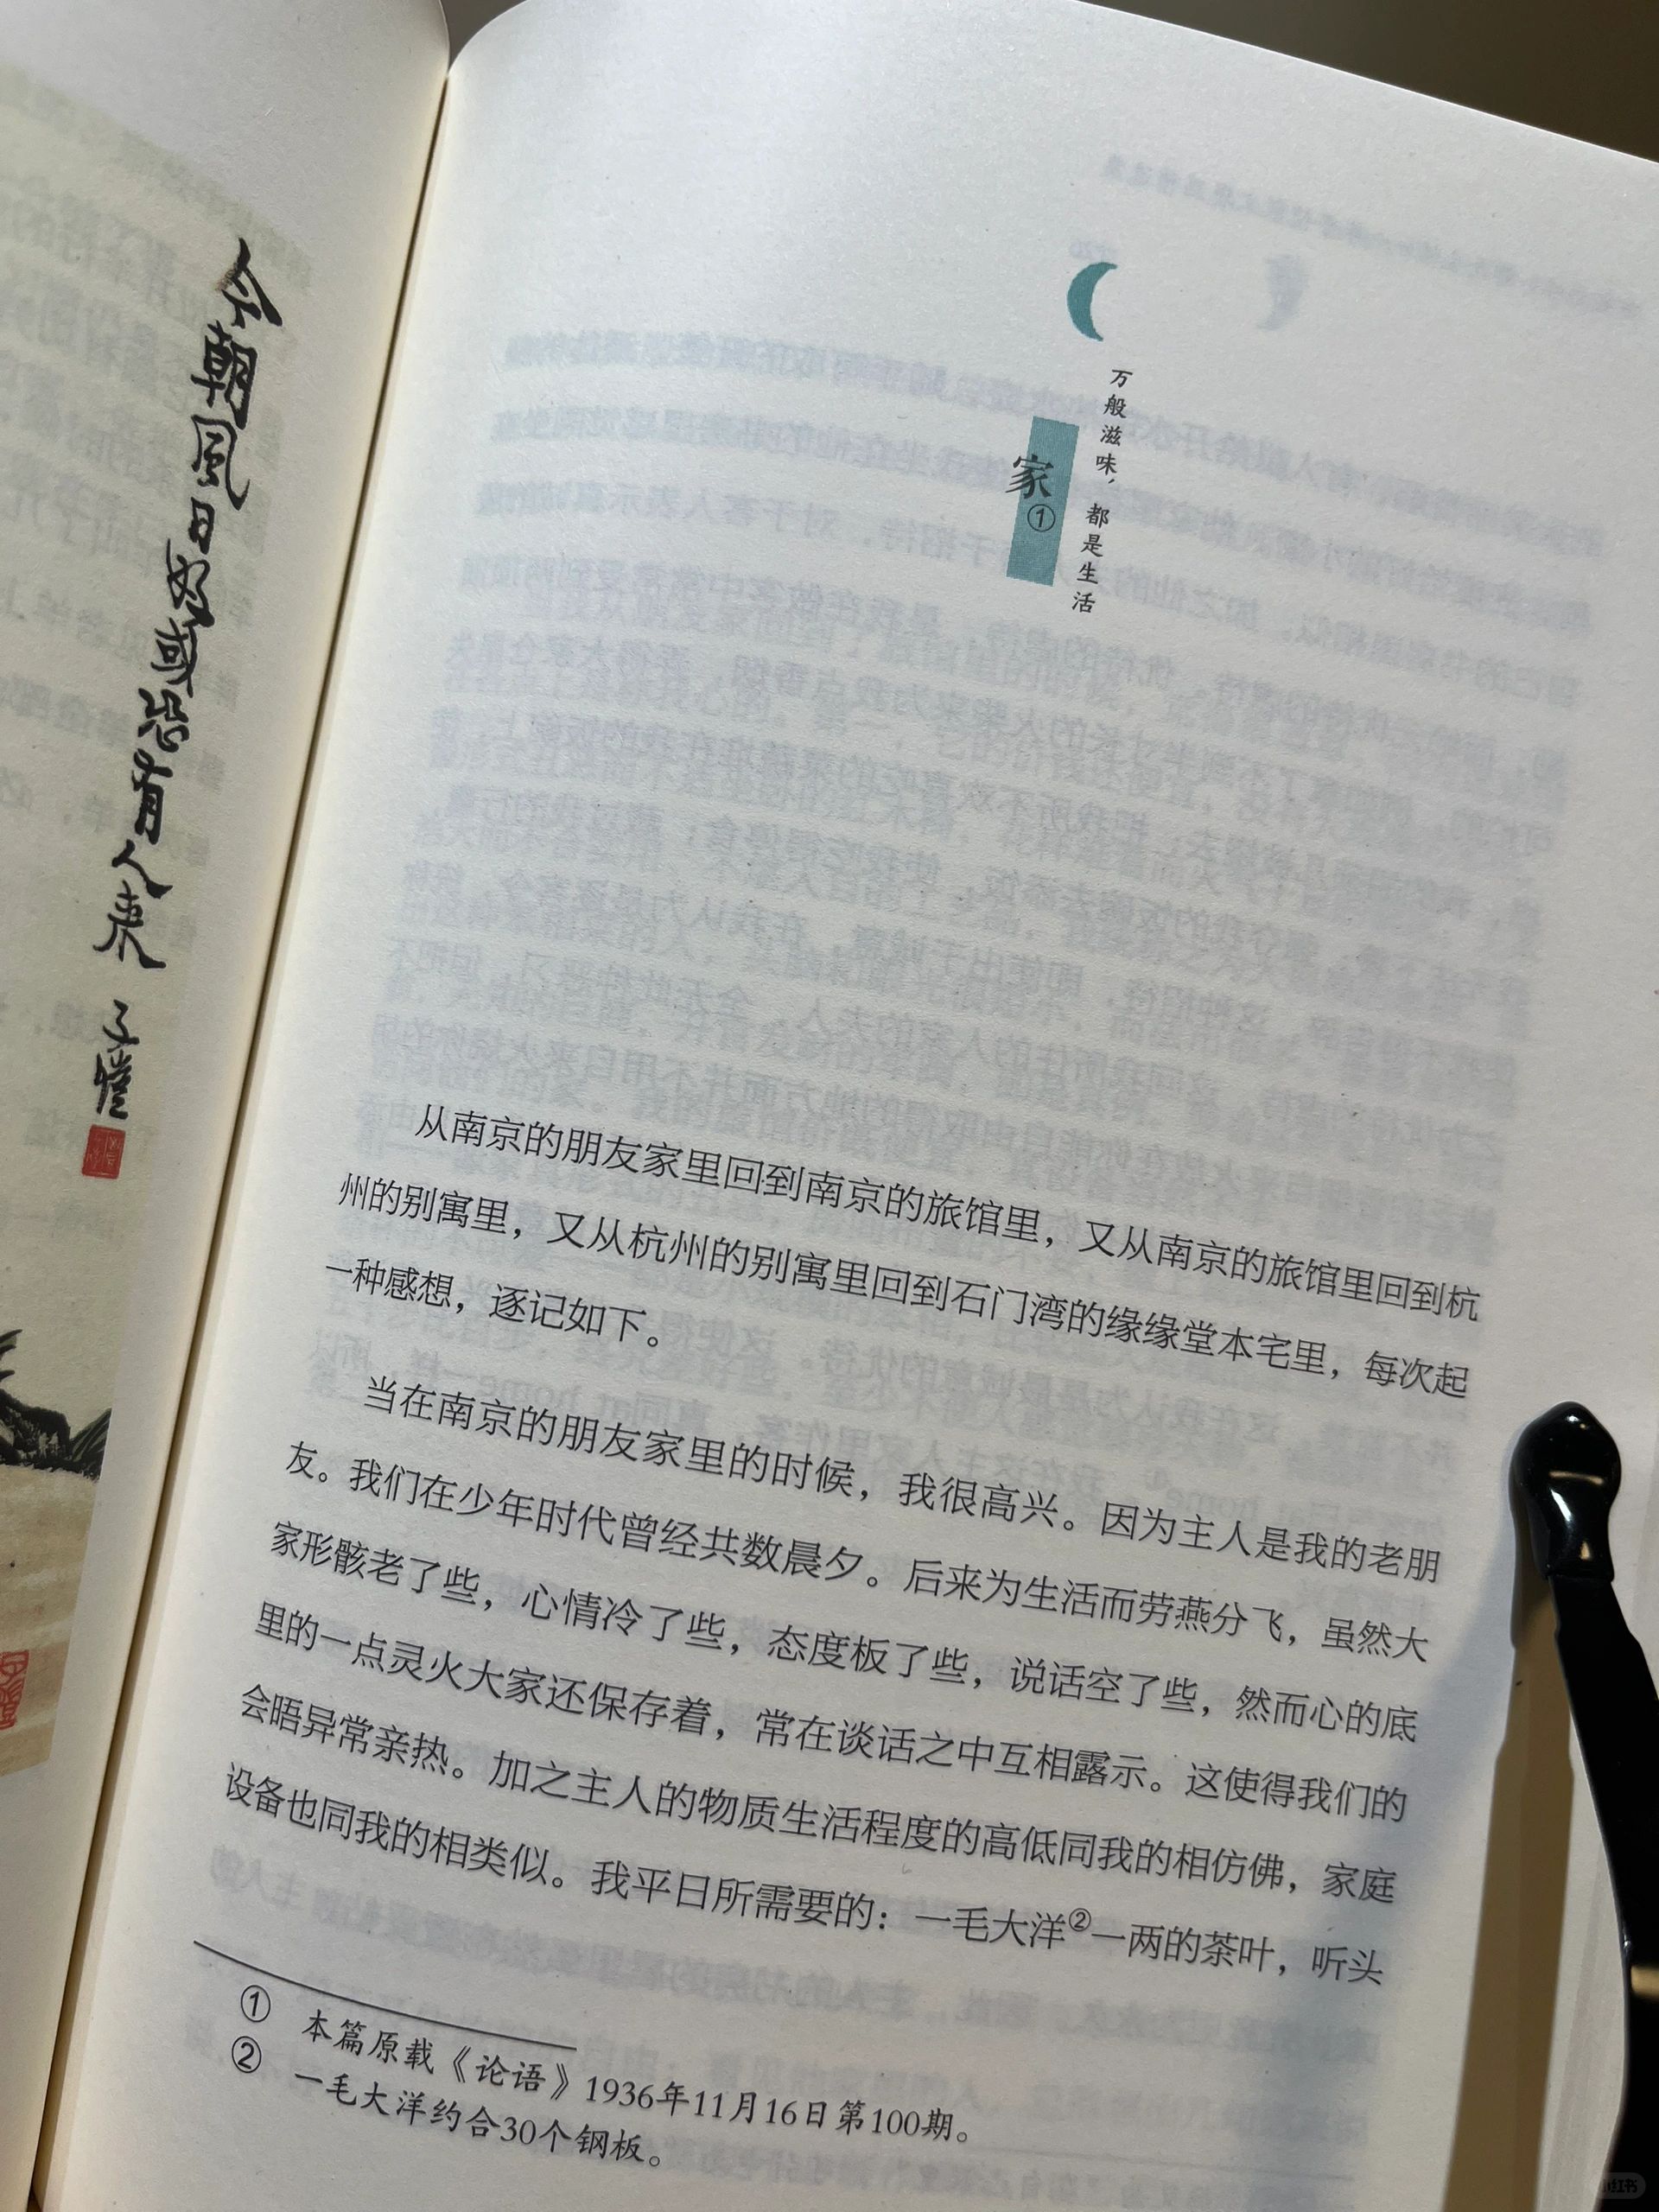 今朝風日好或恐有人来
子愷
万般滋味，都是生活
家①
从南京的朋友家里回到南京的旅馆里，又从南京的旅馆里回到杭
州的别寓里，又从杭州的别寓里回到石门湾的缘缘堂本宅里，每次起
一种感想，逐记如下。
当在南京的朋友家里的时候，我很高兴。因为主人是我的老朋
友。我们在少年时代曾经共数晨夕。后来为生活而劳燕分飞，虽然大
家形骸老了些，心情冷了些，态度板了些，说话空了些，然而心的底
里的一点灵火大家还保存着，常在谈话之中互相露示。这使得我们的
会晤异常亲热。加之主人的物质生活程度的高低同我的相仿佛，家庭
设备也同我的相类似。我平日所需要的：一毛大洋②一两的茶叶，听头
① 本篇原载《论语》1936年11月16日第100期。
② 一毛大洋约合30个钢板。
小红书